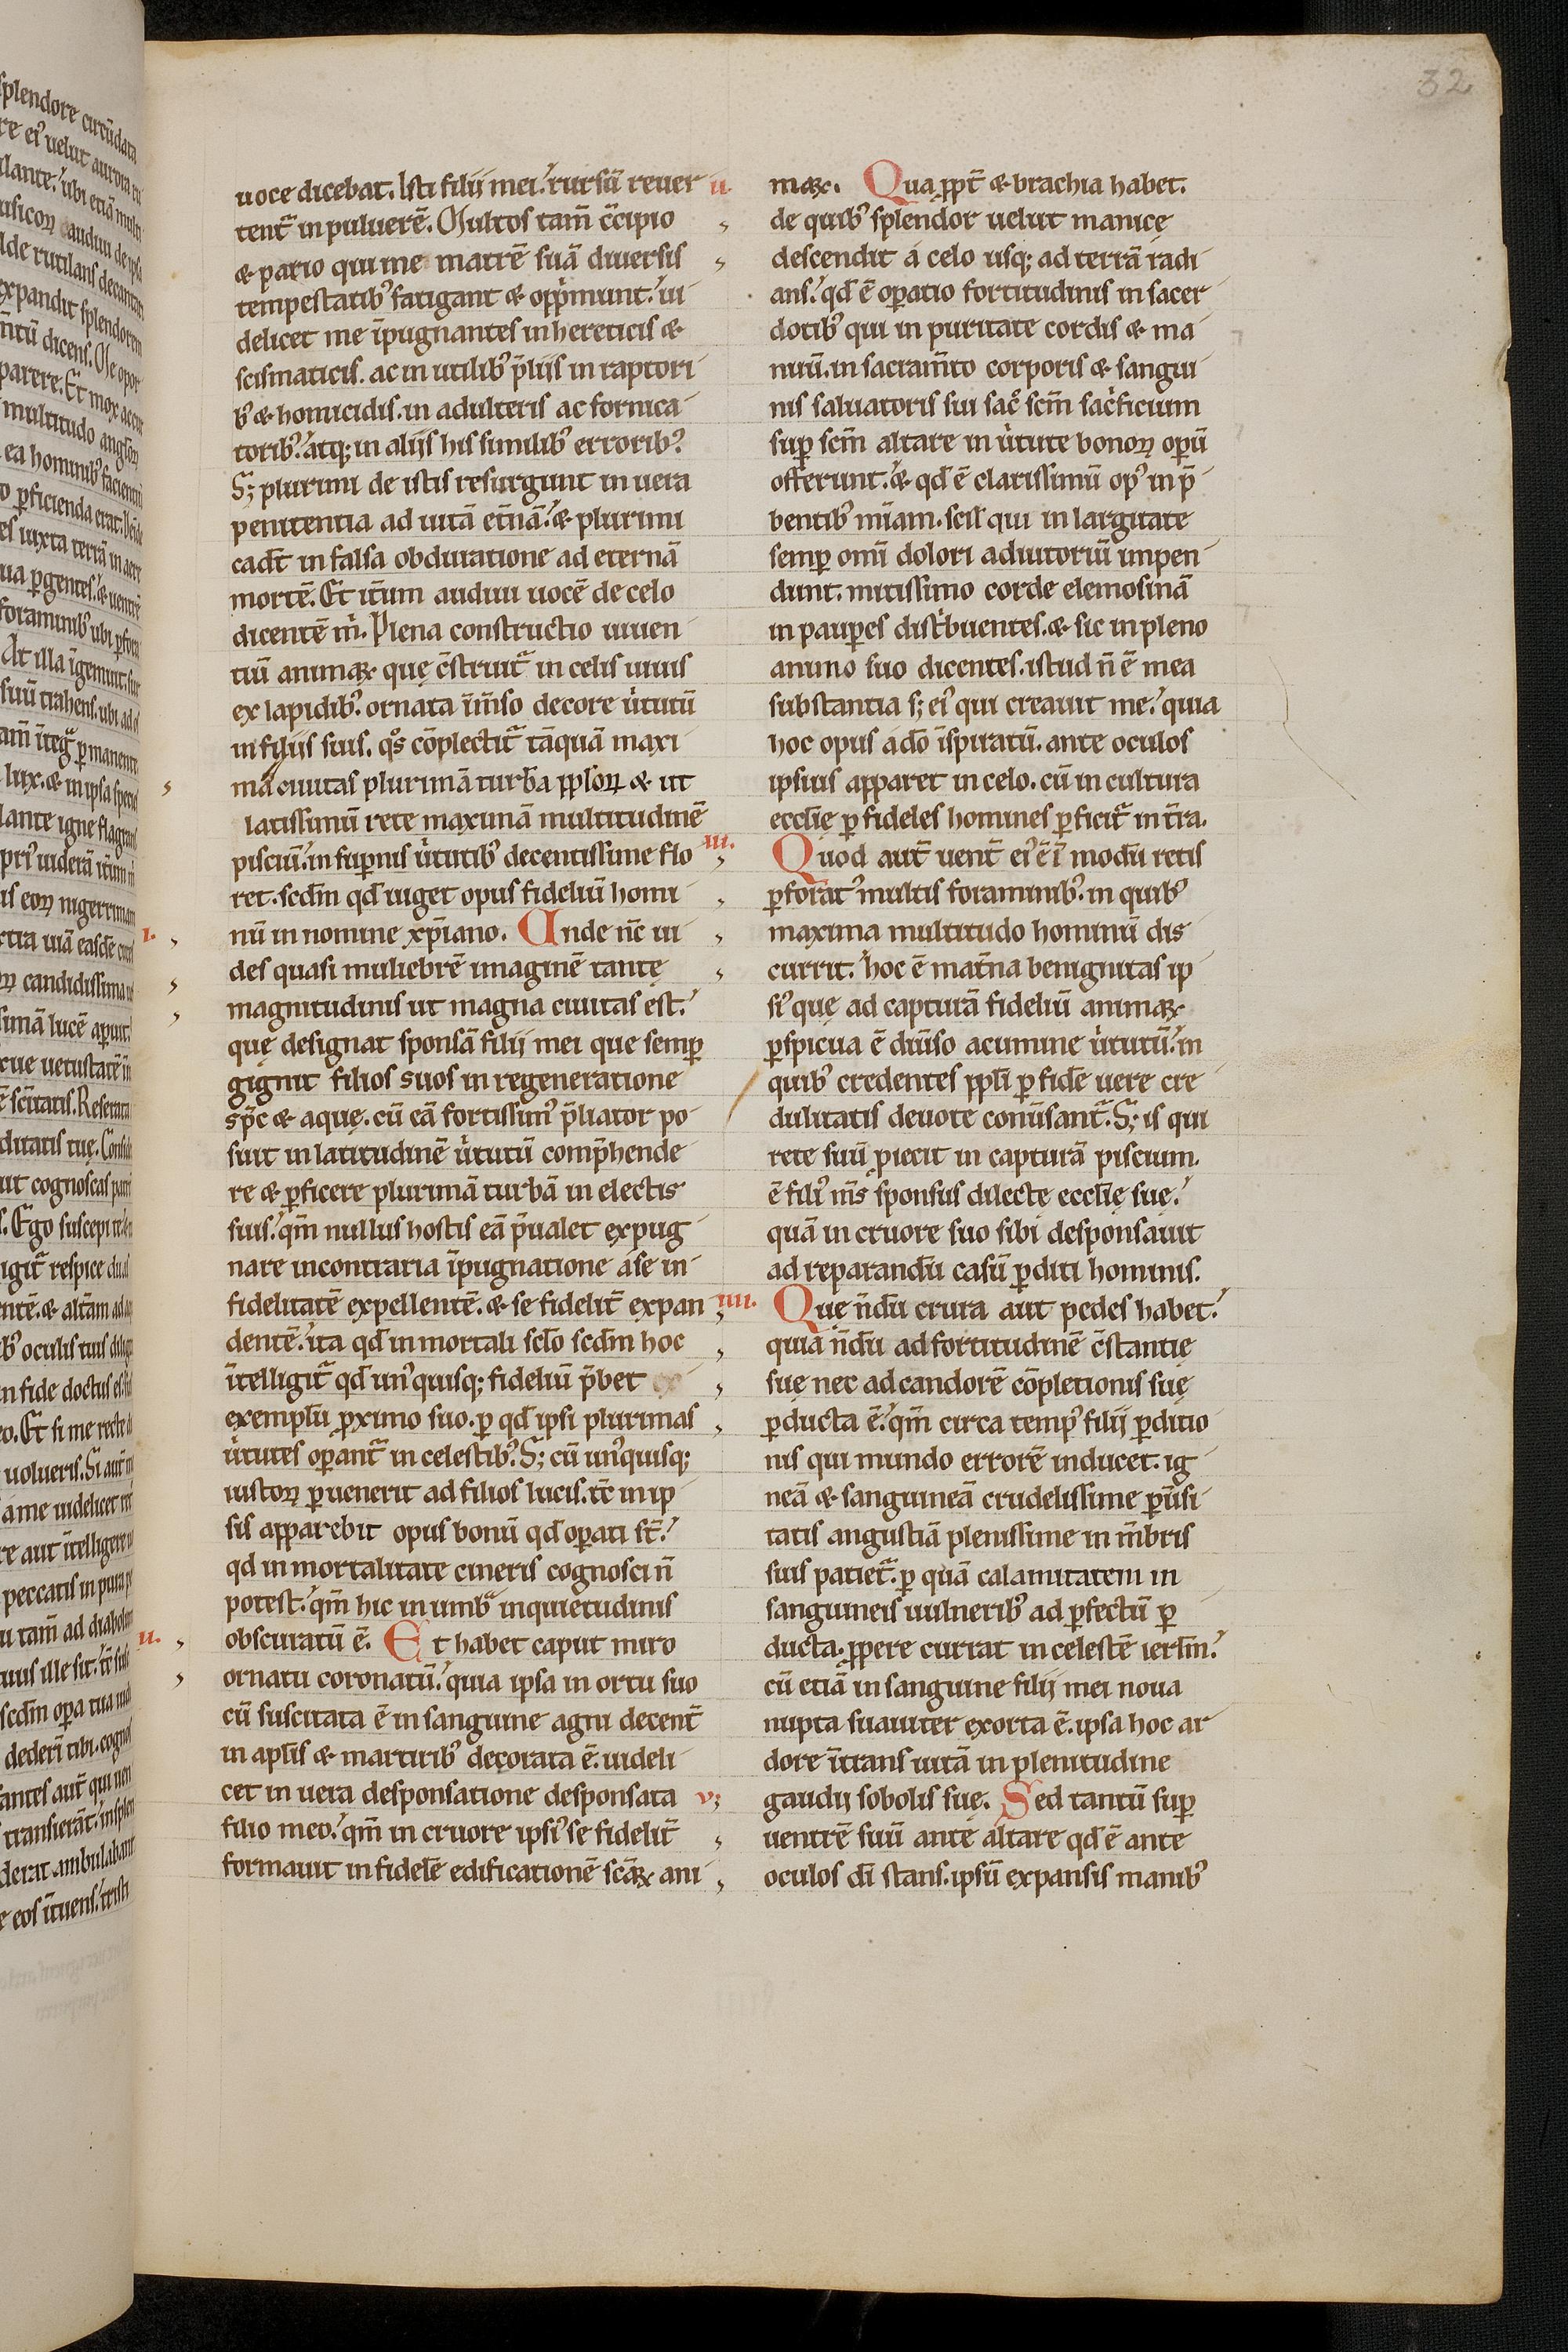 32
uoce dicebat. Isti filij mei. rursū reuer
tent̄ in puluerē. Multos tam̄ c̄cipio
& pario qui me matrē suā diuersis
tempestatib' fatigant & opp̄munt. ui
delicet me īpugnantes in hereticis &
scismaticis. ac in utilib' p̄liis in raptori
b' & homicidis. in adulteris ac fornica
torib'. atq; in alijs his similib' errorib'.
S; plurimi de istis resurgunt in uera
penitentia ad uitā et̄nā. & plurimi
cadt̄ in falsa obduratione ad eternā
mortē. Et it̄um audiui uocē de celo
dicentē m̄. Plena constructio uiuen
tiū animaꝝ que c̄struit̄ in celis uiuis
ex lapidib'. ornata īm̄so decore u̇tutū
in filijs suis. q̊s cōplectit̄ tāquā maxi
ma ciuitas plurimā turbā ppl̄oꝝ & ut
latissimū rete maximā multitudinē
pisciū. in sup̄nis u̇tutib' decentissime flo
ret. scd̄m qd̄ uiget opus fideliū homi
nū in nomine xp̄iano.
i.
Unde nc̄ ui
des quasi muliebrē imaginē tantę
magnitudinis ut magna ciuitas est.
quę designat sponsā filij mei que semꝑ
gignit filios suos in regeneratione
sp̄c & aquę. cū eā fortissim' p̄liator po
suit in latitudinē u̇tutū comp̄hende
re & ꝑficere plurimā turbā in electis
suis. qm̄ nullus hostis eā p̄ualet expug
nare in contraria īpugnatione a se in
fidelitatē expellentē. & se fidelit̄ expan
dentē. ita qd̄ in mortali scl̄o scd̄m hoc
ītelligit̄ qd̄ un'quisq; fideliū p̄bet
exemplū ꝓximo suo. ꝑ qd̄ ipsi plurimas
u̇tutes oꝑant̄ in celestib'. S; cū un'quisq;
iustoꝝ ꝑuenerit ad filios lucis. tc̄ in ip
sis apparebit opus bonū qd̄ oꝑati st̄.
qd̄ in mortalitate cineris cognosci n̄
potest. qm̄ hic in umb̄ inquietudinis
obscuratū ē.
ii.
Et habet caput miro
ornatu coronatū. quia ipsa in ortu suo
cū suscitata ē in sanguine agni decent̄
in apl̄is & martirib' decorata ē. uideli
cet in uera desponsatione desponsata
filio meo. qm̄ in cruore ipsi' se fidelit̄
formauit in fidelē edificationē scāꝝ ani
maꝝ.
ii.
Qua ꝓpt̄ & brachia habet.
de quib' splendor uelut manicę
descendit a celo usq; ad terrā radi
ans. qd̄ ē oꝑatio fortitudinis in sacer
dotib' qui in puritate cordis & ma
nuū. in sacram̄to corporis & sangui
nis saluatoris sui sac̄ scm̄ sac̄ficium
suꝑ scm̄ altare in u̇tute bonoꝝ opū
offerunt. & qd̄ ē clarissimū op' in p̄
bentib' mīam. scil̄ qui in largitate
semꝑ omī dolori adiutoriū impen
dunt. mitissimo corde elemosinā
in pauꝑes dist̄buentes. & sic in pleno
animo suo dicentes. istud n̄ ē mea
substantia s; ei' qui creauit me. quia
hoc opus a dō īspiratū. ante oculos
ipsius apparet in celo. cū in cultura
eccl̄ie ꝑ fideles homines ꝑficit̄ in t̄ra.
iii.
Quod aut̄ uent̄ ei' ē ī modū retis
ꝑforat' multis foraminib'. in quib'
maxima multitudo hominū dis
currit. hoc ē mat̄na benignitas ip
si' quę ad capturā fideliū animaꝝ
ꝑspicua ē diūso acumine u̇tutū. in
quib' credentes ppl̄i ꝑ fidē uere cre
dulitatis deuote conūsant̄. S; is qui
rete suū piecit in capturā piscium.
ē fili' m̄s sponsus dilecte eccl̄ię suę.
quā in cruore suo sibi desponsauit
ad reparandū casū ꝑditi hominis.
iiii.
Que n̄dū crura aut pedes habet.
quia n̄dū ad fortitudinē c̄stantię
suę nec ad candorē cōpletionis suę
ꝑducta ē. qm̄ circa temp' filij ꝑditio
nis qui mundo errorē inducet. ig
neā & sanguineā crudelissime ꝑūsi
tatis angustiā plenissime in m̄bris
suis patiet̄. ꝑ quā calamitatem in
sanguineis uulnerib' ad ꝑfectū ꝑ
ducta. ꝓpere currat in celestē ierl̄m.
cū etiā in sanguine filij mei noua
nupta suauiter exorta ē. ipsa hoc ar
dore ītrans uitā in plenitudine
gaudij sobolis suę.
v.
Sed tantū suꝑ
uentrē suū ante altare qd̄ ē ante
oculos dī stans. ipsū expansis manib'